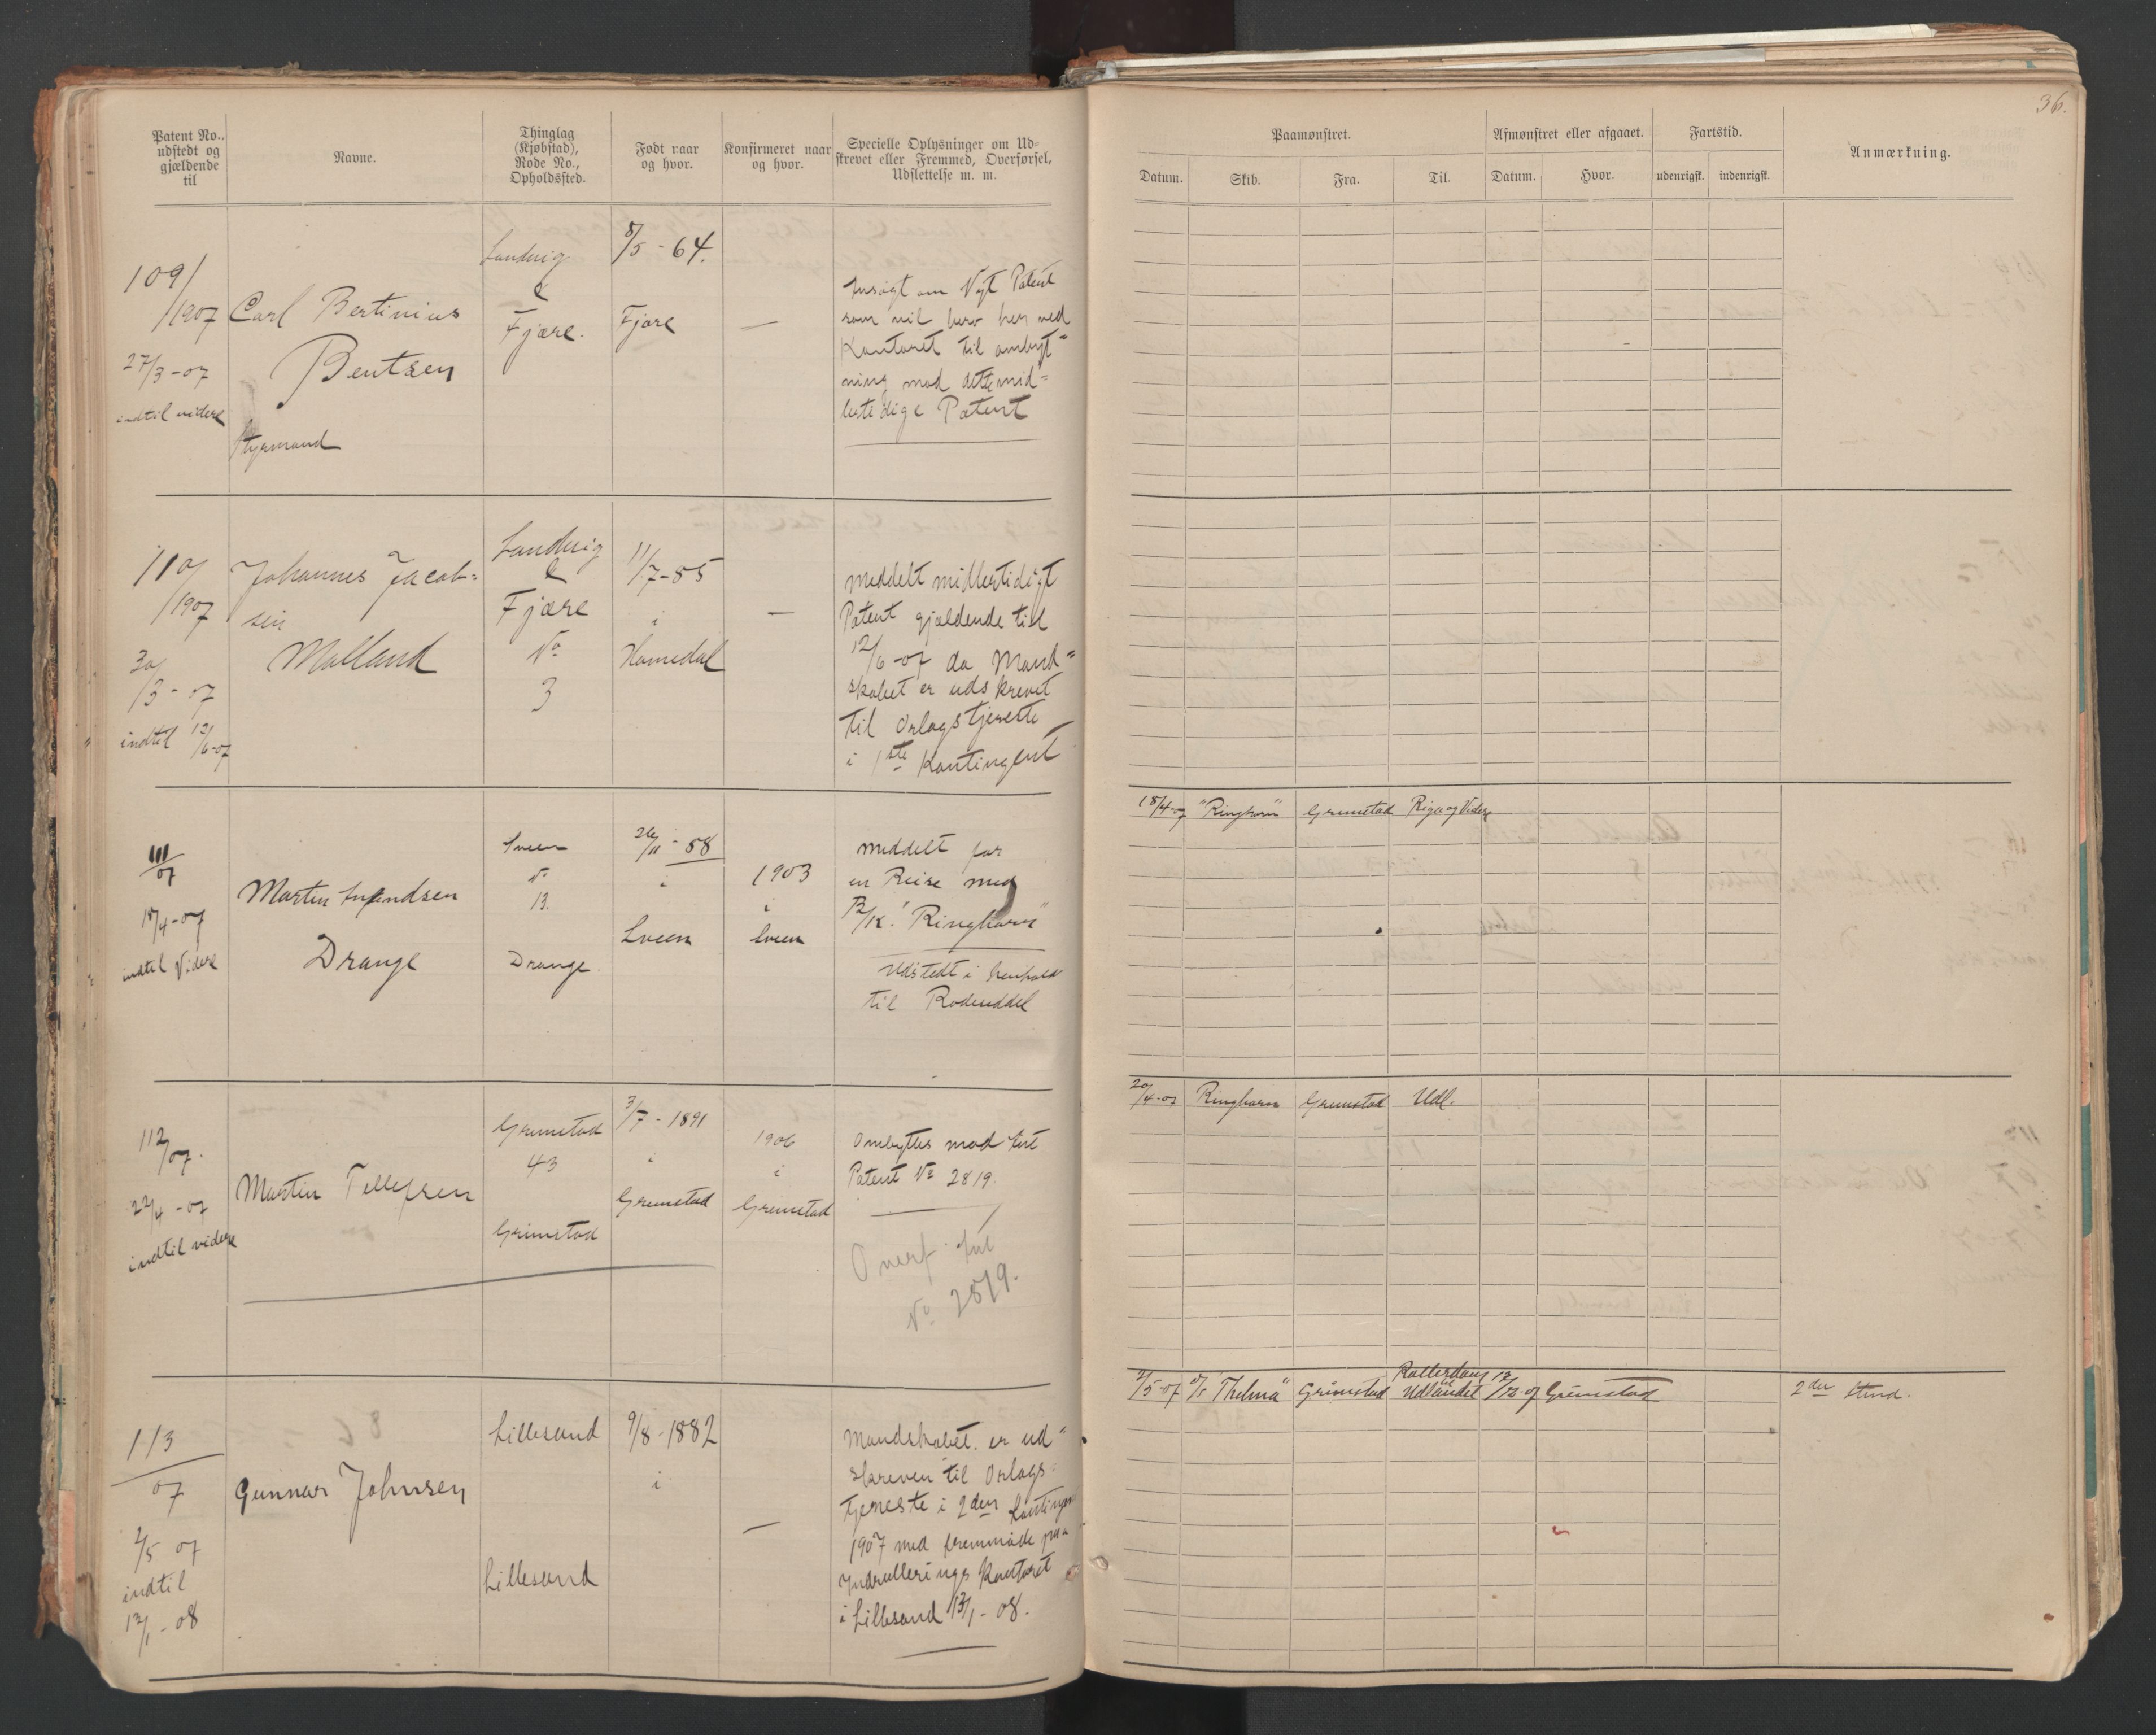 36.
Patent No.,
udstedt og
gjældende
til
Navne.
Thinglag
(Kjøbstad),
Rode No.,
Opholdssted.
Født naar
og hvor.
Konfirmeret naar
og hvor.
Specielle Oplysninger om Ud-
skrevet eller Fremmed, Overførsel,
Udslettelse m. m.
Paamønstret.
Afmønstret eller afgaaet.
Fartstid.
Anmærkning.
Datum.
Skib.
Fra.
Til.
Datum.
Hvor.
udenrigsk.
indenrigsk.
109/
/1907
27/3-07
indtil videre
Carl Bertinius
Bentsen
Styrmand
Landvig
&
Fjære.
8/5-64.
Fjære
—
Ansøgt om Nyt Patent
som vil bero her ved
Kontoret til ombyt=
ning mod dette mid=
lertidige Patent
110/
/1907
30/
/3-07
indtil 12/6-07
Johannes Jacob=
sen
Molland
Landvig
&
Fjære
No
3
11/7-85
i
Homedal
—
meddelt midlertidigt
Patent gjældende til
12/6-07 da Mand=
skabet er udskrevet
til Orlogstjeneste
i 1ste Kontingent
111/07
18/4-07
indtil Videre
Martin
Drange
Sveen
No
13.
Drange
26/11-88
i
Sveen
1903
i
Sveen
meddelt for
en Reise med
"Ringhorn"
Udstedt i henhold
til Rodeseddel
18/4-07 "Ringhorn" Grimstad Riga og Videre
112/07.
22/4-07
indtil videre
Martin Tellefsen
Grimstad
43
Grimstad
3/7-1891
i
Grimstad
1906
i
Grimstad
Ombyttes mod fast
Patent No 2819.
Overf. til
No 2819.
20/4-07 Ringhorn Grimstad Udl.
113
07
2/5 07
indtil
12/1-08
Gunnar Johnsen
Lillesand
Lillesand
9/8-1882
i
—
Mandskabet er ud=
skreven til Orlogs=
tjeneste i 2den Kontingen
1907 med fremmøde paa
Indrulleringskontoret
i Lillesand 13/1-08.
2/5-07 D/S "Thelma" Grimstad Rotterdam til Udlandet 12/12-07 Grimstad
2den Stmd.